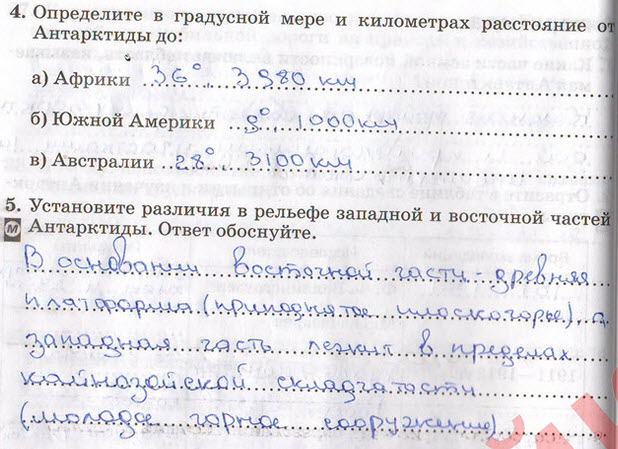 4. Определите в градусной мере и километрах расстояние от
Антарктиды до:
а) Африки 36°, 3980 км
б) Южной Америки 9°, 1000 км
в) Австралии 28°, 3100 км
5. Установите различия в рельефе западной и восточной частей
М Антарктиды. Ответ обоснуйте.
В основании восточной части - древняя
платформа (приподнятое плоскогорье), а
западная часть лежит в пределах
кайнозойской складчатости
(молодое горное сооружение)